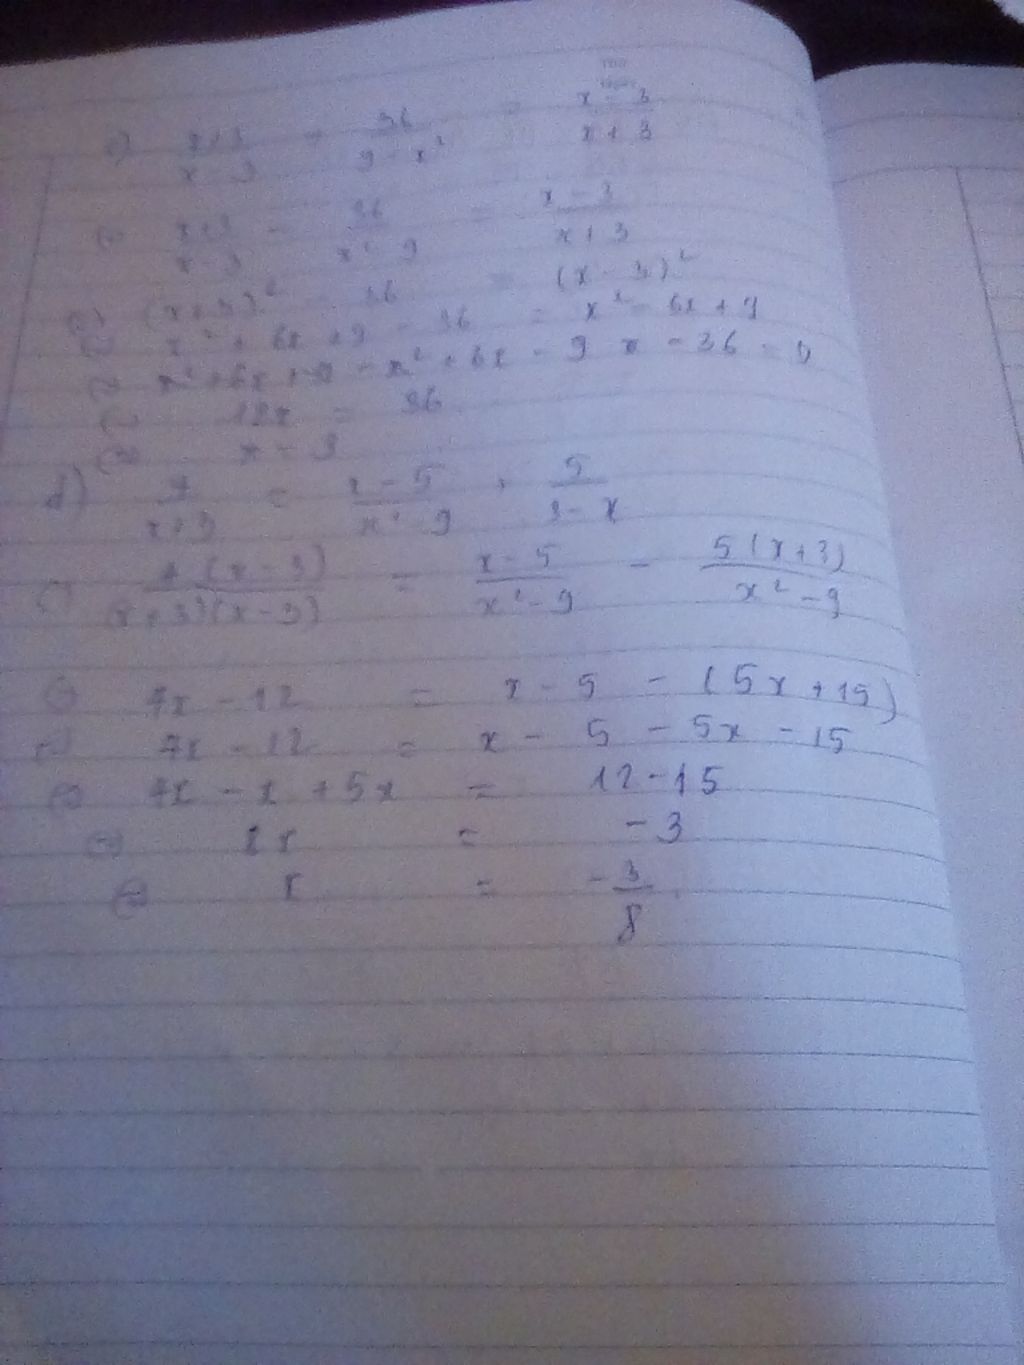 c) x+3/x-3 + 36/9-x² = x-3/x+3
⇔ x+3/x-3 - 36/x²-9 = x-3/x+3
⇔ (x+3)² - 36 = (x-3)²
⇔ x² + 6x + 9 - 36 = x² - 6x + 9
⇔ x² + 6x + 9 - x² + 6x - 9 - 36 = 0
⇔ 12x = 36
⇔ x = 3
d) 4/x+3 = x-5/x²-9 + 5/3-x
⇔ 4(x-3)/(x+3)(x-3) = x-5/x²-9 - 5(x+3)/x²-9
⇔ 4x - 12 = x - 5 - (5x + 15)
⇔ 4x - 12 = x - 5 - 5x - 15
⇔ 4x - x + 5x = 12 - 15
⇔ 8x = -3
⇔ x = -3/8